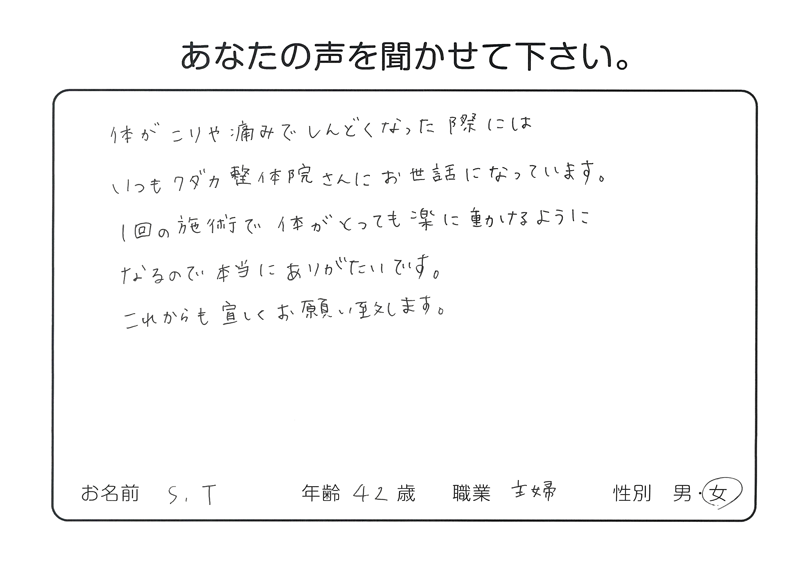 あなたの声を聞かせて下さい。
体がこりや痛みでしんどくなった際には
いつもクダカ整体院さんにお世話になっています。
1回の施術で体がとっても楽に動かけるように
なるので本当にありがたいです。
これからも宜しくお願い致します。
お名前 S.T 年齢 42 歳 職業 主婦 性別 男・女